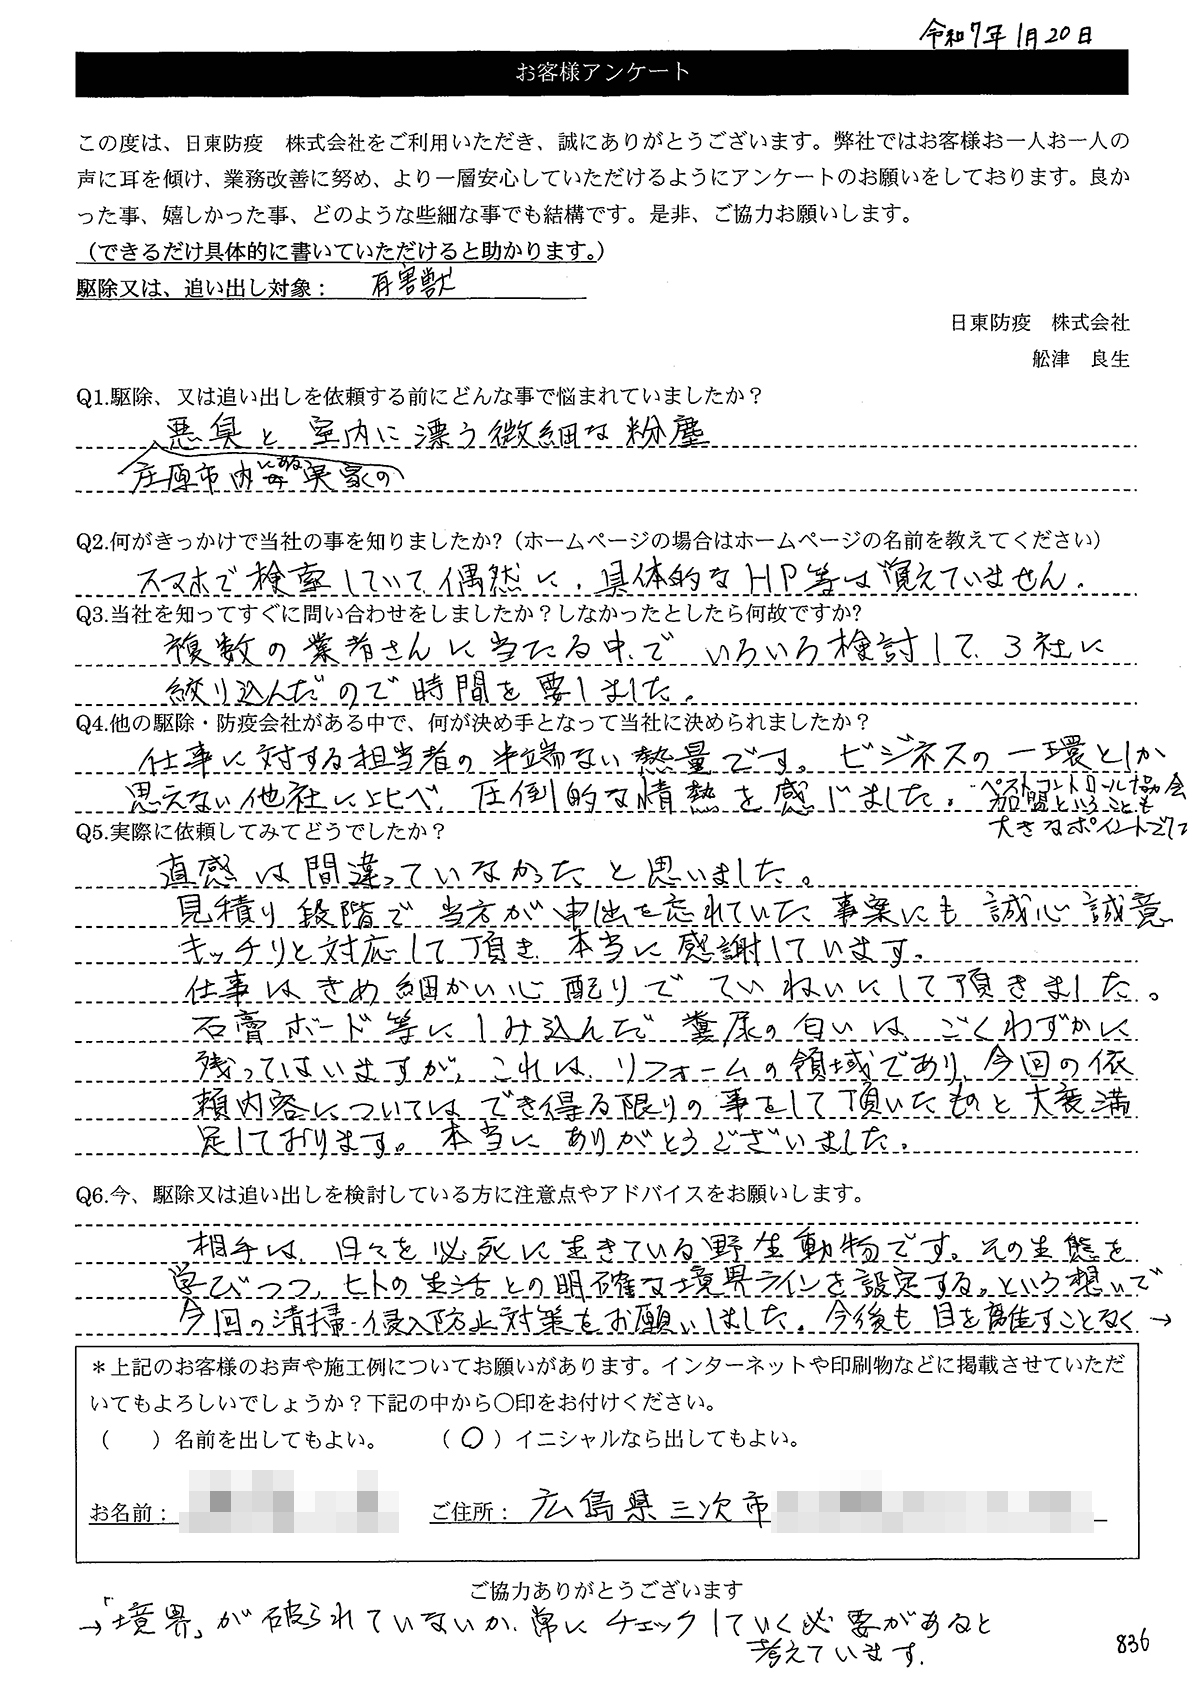 令和7年1月20日
お客様アンケート
この度は、日東防疫　株式会社をご利用いただき、誠にありがとうございます。弊社ではお客様お一人お一人の
声に耳を傾け、業務改善に努め、より一層安心していただけるようにアンケートのお願いをしております。良か
った事、嬉しかった事、どのような些細な事でも結構です。是非、ご協力お願いします。
（できるだけ具体的に書いていただけると助かります。）
駆除又は、追い出し対象： 有害獣
日東防疫　株式会社
舩津　良生
Q1.駆除、又は追い出しを依頼する前にどんな事で悩まれていましたか？
悪臭と室内に漂う微細な粉塵
庄原市内にある実家の
Q2.何がきっかけで当社の事を知りましたか?（ホームページの場合はホームページの名前を教えてください）
スマホで検索していて、偶然に、具体的なHP等は覚えていません。
Q3.当社を知ってすぐに問い合わせをしましたか？しなかったとしたら何故ですか?
複数の業者さんに当たる中で いろいろ検討して、3社に
絞り込んだので時間を要しました。
Q4.他の駆除・防疫会社がある中で、何が決め手となって当社に決められましたか？
仕事に対する担当者の半端ない熱量です。ビジネスの一環としか
思えない他社に比べ、圧倒的な情熱を感じました。ペストコントロール協会
加盟ということも
大きなポイントでした
Q5.実際に依頼してみてどうでしたか？
直感は間違っていなかったと思いました。
見積り段階で当方が申出を忘れていた事案にも誠心誠意
キッチリと対応して頂き、本当に感謝しています。
仕事はきめ細かい心配りでていねいにして頂きました。
石膏ボード等にしみ込んだ糞尿の匂いは、ごくわずかに
残ってはいますが、これは、リフォームの領域であり、今回の依
頼内容についてはでき得る限りの事をして頂いたものと大変満
足しております。本当にありがとうございました。
Q6.今、駆除又は追い出しを検討している方に注意点やアドバイスをお願いします。
相手は、日々を必死に生きている野生動物です。その生態を
学びつつ、ヒトの生活との明確な境界ラインを設定する。という想いで
今回の清掃・侵入防止対策をお願いしました。今後も目を離すことなく→
＊上記のお客様のお声や施工例についてお願いがあります。インターネットや印刷物などに掲載させていただ
いてもよろしいでしょうか？下記の中から〇印をお付けください。
（　　）名前を出してもよい。　　（〇）イニシャルなら出してもよい。
お名前：　ご住所： 広島県三次市
ご協力ありがとうございます
→「境界」が破られていないか、常にチェックしていく必要があると
考えています。
836